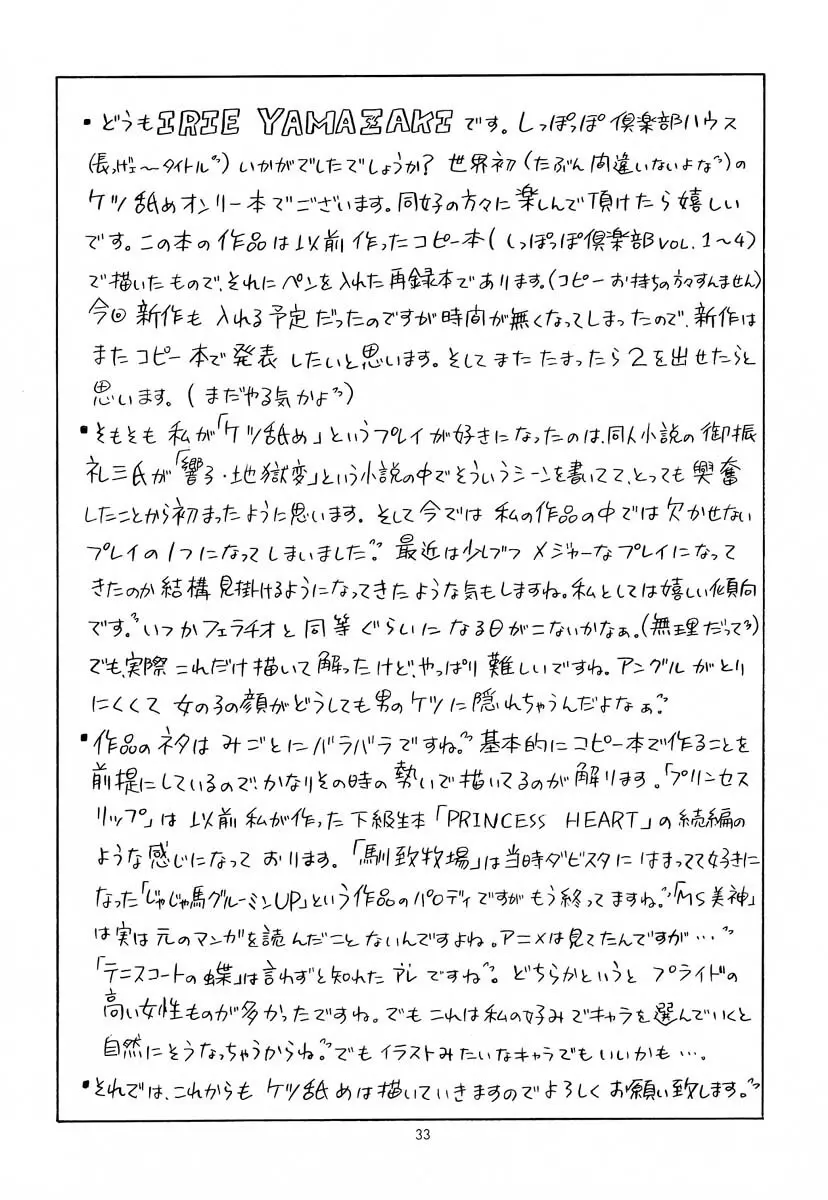 ・どうもIRIE YAMAZAKIです。しっぽっぽ倶楽部ハウス
(長っげェ〜タイトル〃)いかがでしたでしょうか?世界初(たぶん間違いないよな〃)の
ケツ舐めオンリー本でございます。同好の方々に楽しんで頂けたら嬉しい
です。この本の作品は以前作ったコピー本(しっぽっぽ倶楽部VOL.1〜4)
で描いたもので、それにペンを入れた再録本であります。(コピーお持ちの方々すんません)
今回新作も入れる予定だったのですが時間が無くなってしまったので、新作は
またコピー本で発表したいと思います。そしてまたたまったら2を出せたらと
思います。(まだやる気かよ〃)
・そもそも私が「ケツ舐め」というプレイが好きになったのは、同人小説の御振
礼三氏が「響子・地獄変」という小説の中でそういうシーンを書いてて、とっても興奮
したことから初まったように思います。そして今では私の作品の中では欠かせない
プレイの1つになってしまいました〃。最近は少しづつメジャーなプレイになって
きたのか結構見掛けるようになってきたような気もしますね。私としては嬉しい傾向
です。〃いつかフェラチオと同等ぐらいになる日がこないかなぁ。(無理だって〃)
でも、実際これだけ描いて解ったけど、やっぱり難しいですね。アングルがとり
にくくて女の子の顔がどうしても男のケツに隠れちゃうんだよなぁ〃。
・作品のネタはみごとにバラバラですね〃。基本的にコピー本で作ることを
前提にしているので、かなりその時の勢いで描いてるのが解ります。「プリンセス
リップ」は以前私が作った下級生本「PRINCESS HEART」の続編の
ような感じになっております。「馴致牧場」は当時ダビスタにはまってて好きに
なった「じゃじゃ馬グルーミンUP」という作品のパロディですがもう終ってますね。〃「MS美神」
は実は元のマンガを読んだことないんですよね。アニメは見てたんですが…〃
「テニスコートの蝶」は言わずと知れたアレですね〃。どちらかというとプライドの
高い女性ものが多かったですね。でもこれは私の好みでキャラを選んでいくと
自然にそうなっちゃうからね。〃でもイラストみたいなキャラでもいいかも…。
・それでは、これからもケツ舐めは描いていきますのでよろしくお願い致します。〃
33